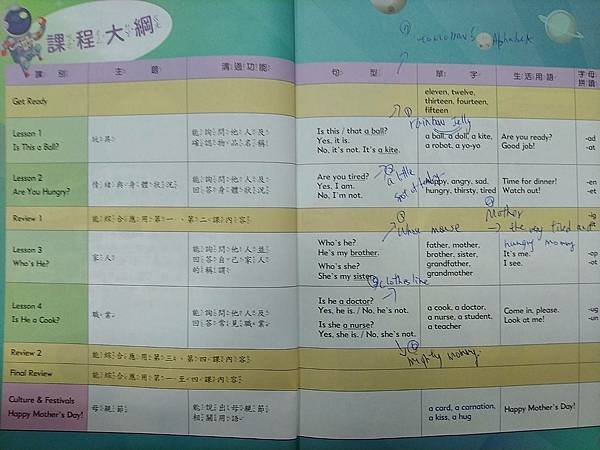 課程大綱
課別 主題 溝通功能 句型 單字 生活用語 字母拼讀
Get Ready
eleven, twelve,
thirteen, fourteen,
fifteen
Lesson 1
Is This a Ball?
玩具
能詢問他人及
確認物品名稱
Is this / that a ball?
Yes, it is.
No, it's not. It's a kite.
a ball, a doll, a kite,
a robot, a yo-yo
Are you ready?
Good job!
-ad
-at
Lesson 2
Are You Hungry?
情緒與身體狀況
能詢問他人及
回答身體狀況
Are you tired?
Yes, I am.
No, I'm not.
happy, angry, sad,
hungry, thirsty, tired
Time for dinner!
Watch out!
-en
-et
Review 1
能綜合應用第一、第二課內容
-ig
Lesson 3
Who's He?
家人
能詢問他人並
回答自己家人
的稱謂
Who's he?
He's my brother.
Who's she?
She's my sister.
father, mother,
brother, sister,
grandfather,
grandmother
It's me.
I see.
-op
-ot
Lesson 4
Is He a Cook?
職業
能詢問他人及
回答常見職業
Is he a doctor?
Yes, he is. / No, he's not.
Is she a nurse?
Yes, she is. / No, she's not.
a cook, a doctor,
a nurse, a student,
a teacher
Come in, please.
Look at me!
-ug
-un
Review 2
能綜合應用第三、第四課內容
Final Review
能綜合應用第一至四課內容
Culture & Festivals
Happy Mother's Day!
母親節
能說出母親節
相關用語
a card, a carnation,
a kiss, a hug
Happy Mother's Day!
Alphabet
rainbow Jelly
a little
spot of
whose mouse
Mother
→ the very tired and
hungry mommy
clothes line
mighty mommy.